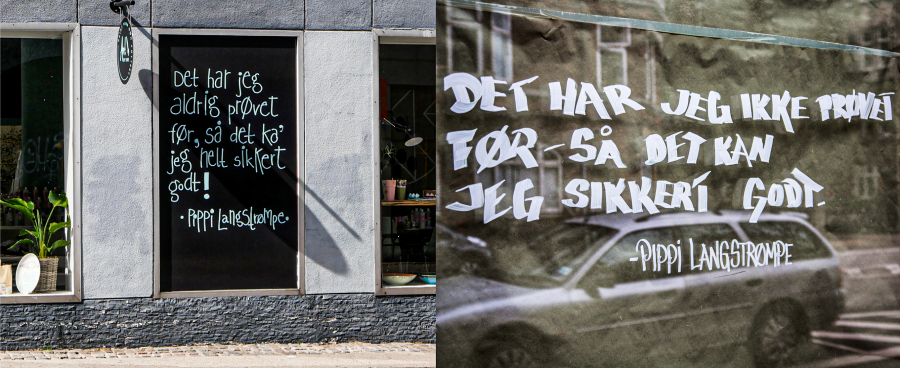 Det har jeg
aldrig prøvet
før, så det ka'
jeg helt sikkert
godt!
• Pippi Langstrømpe •
DET HAR JEG IKKE PRØVET
FØR – SÅ DET KAN
JEG SIKKERT GODT.
-PIPPI LANGSTRØMPE